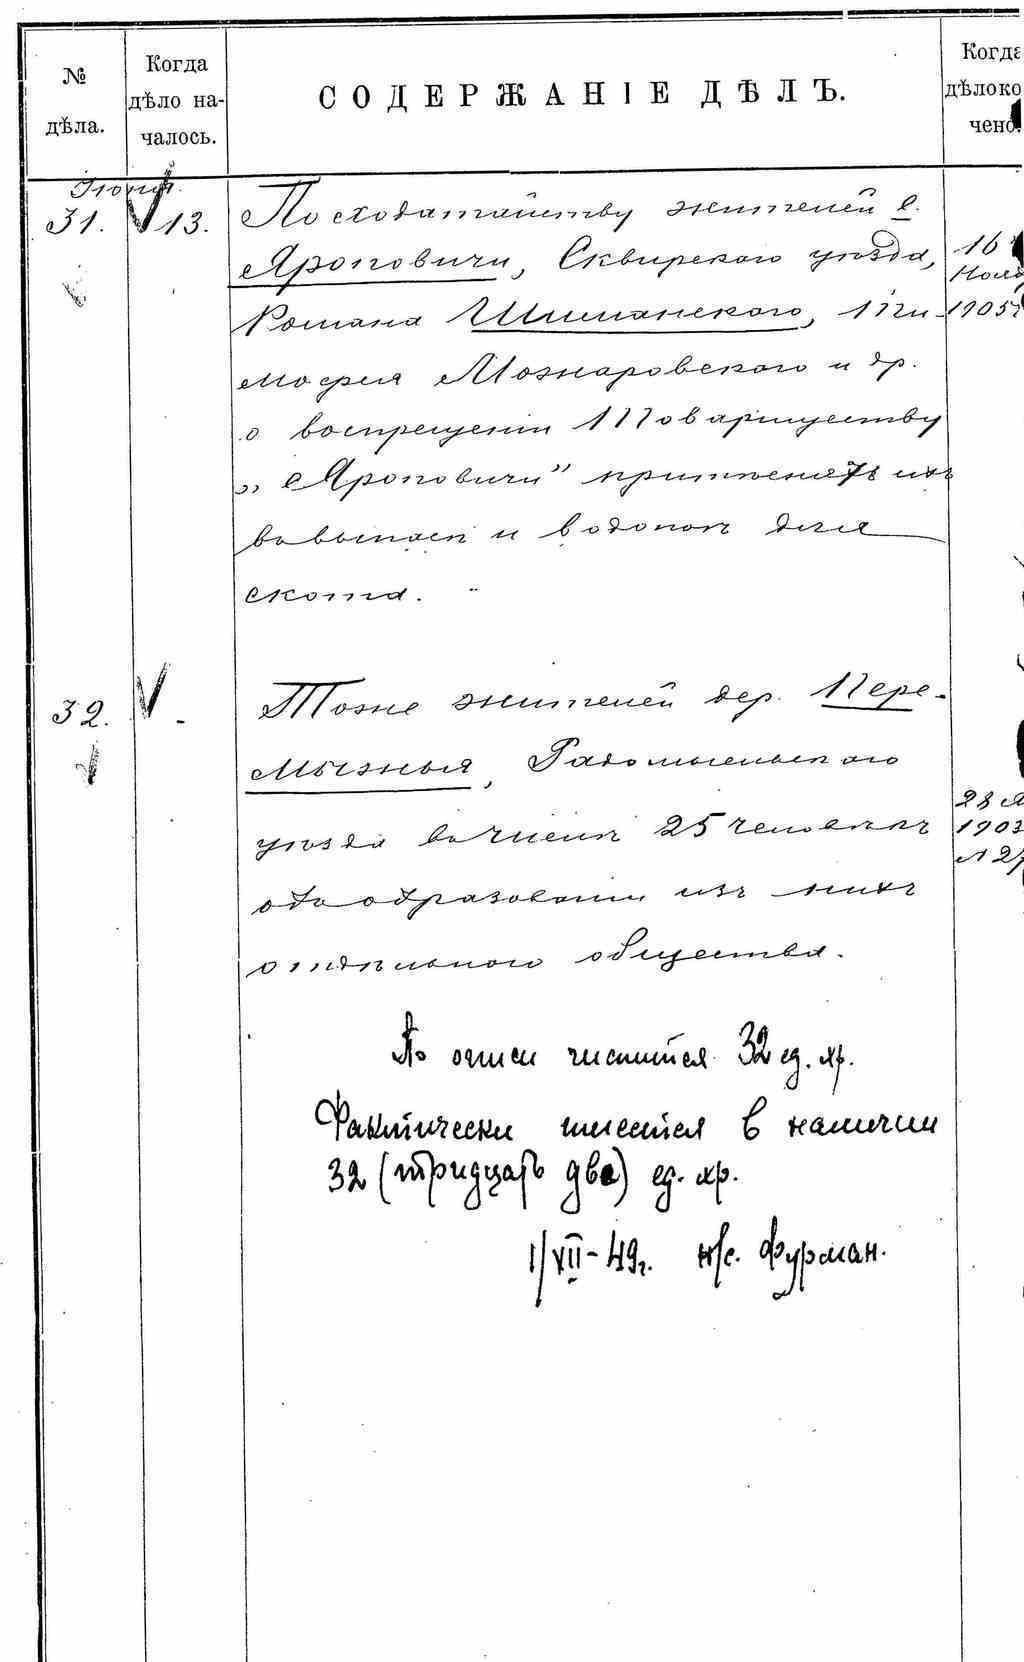 №
дѣла.
Когда
дѣло на-
чалось.
СОДЕРЖАНІЕ ДѢЛЪ.
Когда
дѣло ко
чено.
Іюня.
31.
13.
По ходатайству жителей с.
Яроповичи, Сквирскаго уѣзда,
Романа Шиманскаго, Ти-
мофеяМожаровскаго и др.
о воспрещеніи Товариществу
„Яроповичи" притѣснять ихъ
въ выпасѣ и водопоѣ для
скота.
16
1905г
32.
-
Тоже жителей дер. Пере-
мыжья, Радомысльскаго
уѣзда въ числѣ 25 человѣкъ
объ образованіи изъ нихъ
отдѣльнаго общества.
28
1903
По описи числится 32 ед. хр.
Фактически имеется в наличии
32 (тридцать два) ед. хр.
1/VII-49г. н/с. Фурман.